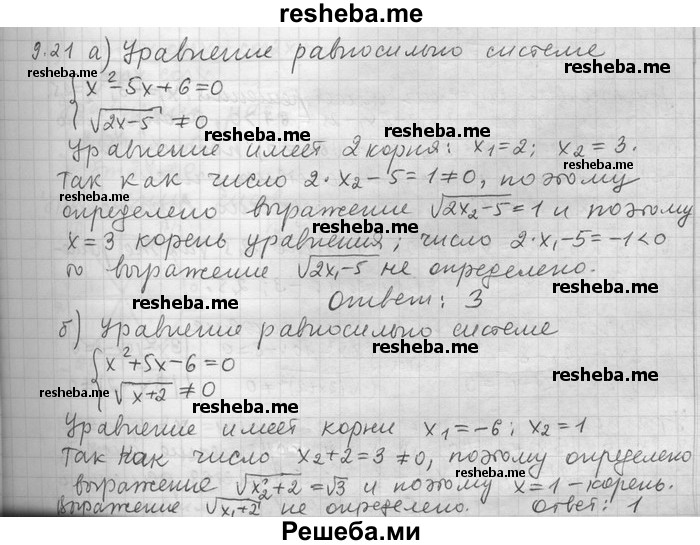 resheba.me
9.21 а) Уравнение равносильно системе
resheba.me
resheba.me
x² - 5x + 6 = 0
√(2x-5) ≠ 0
resheba.me
Уравнение имеет 2 корня: x₁ = 2; x₂ = 3.
resheba.me
resheba.me
Так как число 2·x₂ - 5 = 1 ≠ 0, поэтому
определено выражение √(2x₂-5) = 1 и поэтому
resheba.me
resheba.me
x = 3 корень уравнения; число 2·x₁ - 5 = -1 < 0
то выражение √(2x₁-5) не определено.
resheba.me
Ответ: 3
resheba.me
б) Уравнение равносильно системе
resheba.me
x² + 5x - 6 = 0
√(x+2) ≠ 0
resheba.me
resheba.me
resheba.me
Уравнение имеет корни x₁ = -6; x₂ = 1
Так как число x₂ + 2 = 3 ≠ 0, поэтому определено
resheba.me
выражение √(x₂+2) = √3 и поэтому x = 1 - корень.
resheba.me
Выражение √(x₁+2) не определено. Ответ: 1
Решеба.ми